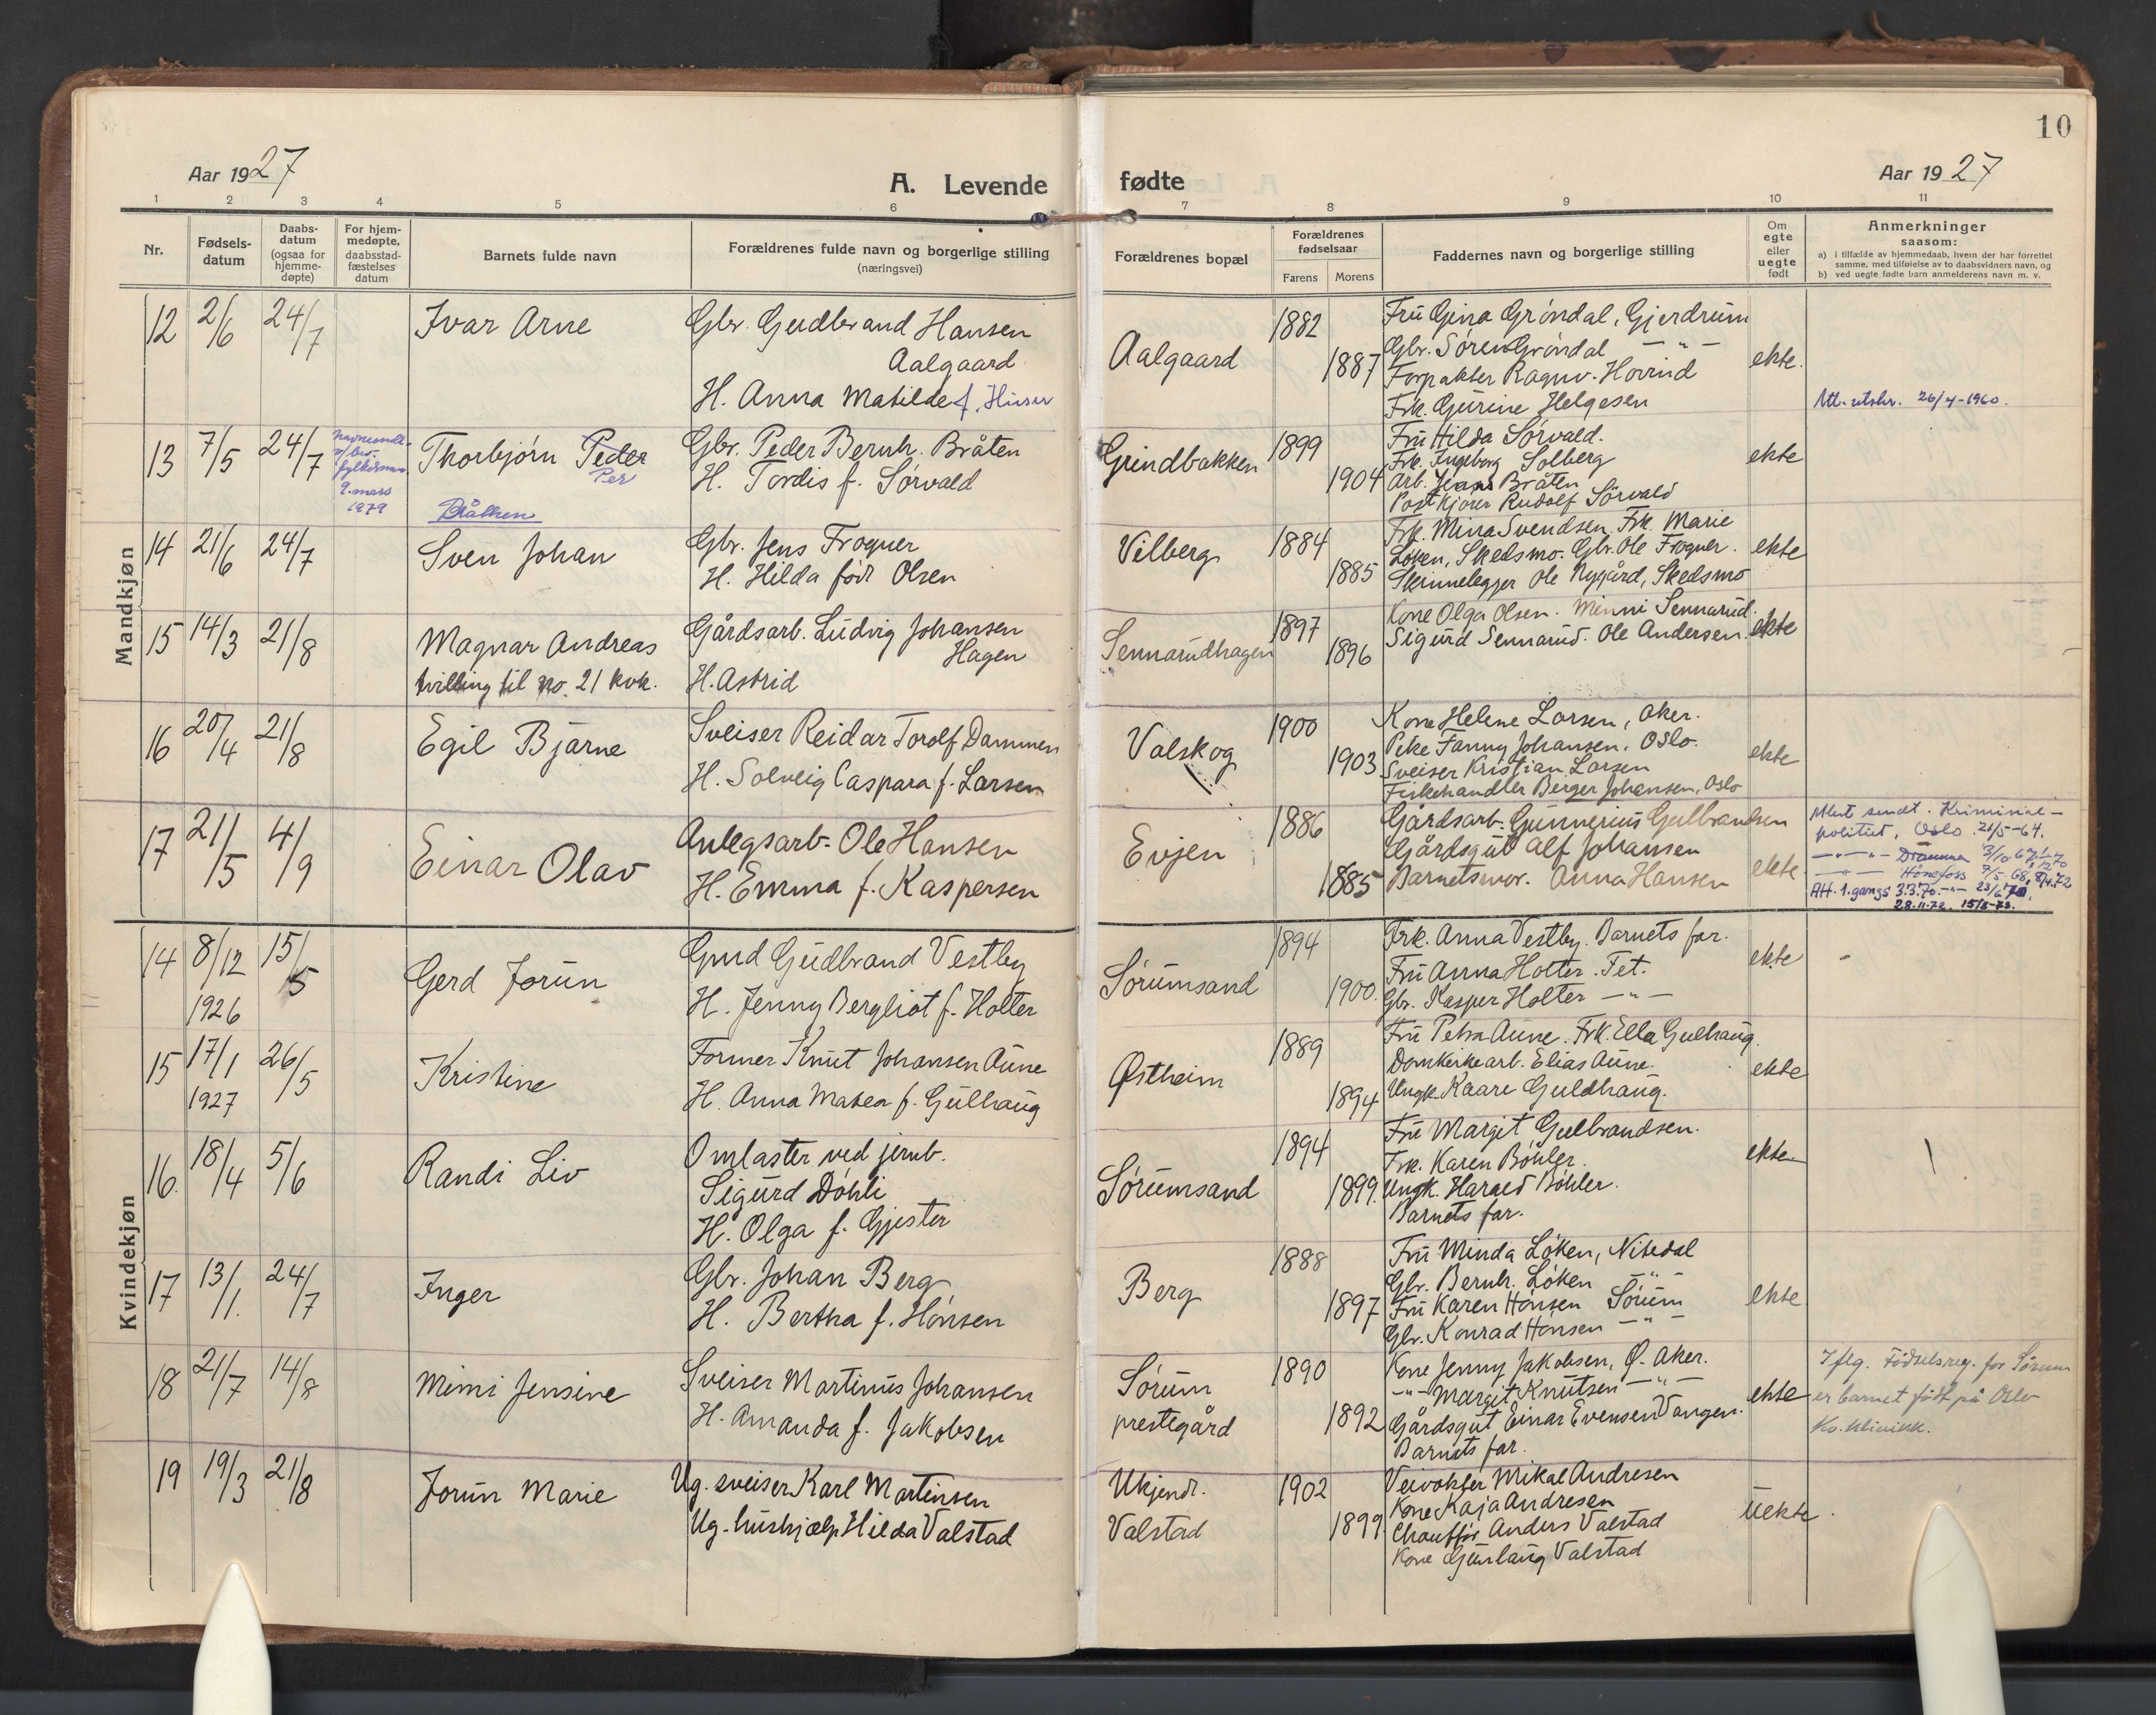 10
Aar 1927
A. Levende fødte
Aar 1927
1 2 3 4 5 6 7 8 9 10 11
Nr.
Fødsels-
datum
Daabs-
datum
(ogsaa for
hjemme-
døpte)
For hjem-
medøpte,
daabsstad-
fæstelses
datum
Barnets fulde navn
Forældrenes fulde navn og borgerlige stilling
(næringsvei)
Forældrenes bopæl
Forældrenes
fødselsaar
Farens Morens
Faddernes navn og borgerlige stilling
Om
egte
eller
uegte
født
Anmerkninger
saasom:
a) i tilfælde av hjemmedaab, hvem der har forrettet
samme, med tilføielse av to daabsvidners navn, og
b) ved uegte fødte barn anmelderens navn m. v.
Mandkjøn
12 2/6 24/7 Ivar Arne
Gbr. Gudbrand Hansen
Aalgaard
H. Anna Matilde f.
Aalgaard
1882
1887
Fru Gina Grøndal, Gjerdrum
Gbr. Søren Grøndal — " —
Forpakter Ragnv. Hovind
Frk. Gurine Helgesen
ekte.
Att. utskr. 26/4-1960.
13 7/5 24/7
fylkesman
9. mars
1979
Thorbjørn Peder
Per
Bråthen
Gbr. Peder Bernh. Bråten
H. Tordis f. Sørvald
Grindbakken
1899
1904
Fru Hilda Sørvald.
Frk. Ingeborg Solberg
Arb. Jens Bråten
Postkjører Rudolf Sørvald
ekte
14 21/6 24/7 Sven Johan
Gbr. Jens Frogner
H. Hilda født Olsen
Vilberg
1884
1885
Frk. Mina Svendsen. Frk. Marie
Løken, Skedsmo. Gbr. Ole Frogner.
Skinnelegger Ole Nygård, Skedsmo
ekte
15 14/3 21/8 Magnar Andreas
tvilling til no. 21 kvk.
Gårdsarb. Ludvig Johansen
Hagen
H. Astrid
Sennerudhagen
1897
1896
Kone Olga Olsen. Minni Sennerud.
Sigurd Sennerud. Ole Andersen.
ekte
16 20/4 21/8 Egil Bjarne
Sveiser Reidar Torolf Dammen
H. Solveig Caspara f. Larsen
Valskog
1900
1903
Kone Helene Larsen, Aker.
Pike Fanny Johansen. Oslo.
Sveiser Kristian Larsen
Fiskehandler Berger Johansen, Oslo
ekte
17 21/5 4/9 Einar Olav
Anlegsarb. Ole Hansen
H. Emma f. Kaspersen
Evjen
1886
1885
Gårdsarb. Gunnerius Gulbrandsen
Gårdsgut Alf Johansen
Barnets mor. Anna Hansen
ekte
Attest sendt. Kriminal-
politiet, Oslo 21/5-64.
Drammen
Hönefoss 7/5 68,
Att. 1. gangs 3.3.70.
28.11.72. 15/5-73.
Kvindekjøn
14 8/12 15/5
1926
Gerd Jorun
Gmd Gudbrand Vestby
H. Jenny Bergliot f. Holter
Sørumsand
1894
1900.
Frk. Anna Vestby. Barnets far.
Fru Anna Holter. Fet.
Gbr. Kasper Holter — " —
ekte
15 17/1 26/5
1927
Kristine
Former Knut Johansen Aune
H. Anna Matea f. Gulhaug
Østheim
1889
1894
Fru Petra Aune. Frk. Ella Gulhaug.
Domkirkearb. Elias Aune.
Ungk. Kaare Guldhaug.
ekte
16. 18/4 5/6 Randi Liv
Omlaster ved jernb.
Sigurd Døhli
H. Olga f. Gjester
Sørumsand
1894
1899.
Fru Margit Gulbrandsen.
Frk. Karen Bøhler.
Ungk. Harald Bøhler.
Barnets far.
ekte
17 13/1. 24/7 Inger
Gbr. Johan Berg
H. Bertha f. Hønsen
Berg
1888
1897
Fru Minda Løken, Nitedal
Gbr. Bernh. Løken — " —
Fru Karen Hønsen Sørum
Gbr. Konrad Hønsen — " —
ekte
18 21/7 14/8 Mimi Jensine
Sveiser Martinus Johansen
H. Amanda f. Jakobsen
Sørum
prestegård
1890
1892
Kone Jenny Jakobsen, Ø. Aker.
— " — Margit Knutsen — " —
Gårdsgut Einar Evensen Vangen.
Barnets far.
ekte
Iflg. Fødselsreg. for Sørum
er barnet født på Oslo
Kv.klinikk.
19 19/3 21/8 Jorun Marie
Ug. sveiser Karl Martinsen
Ug. hushjælp Hilda Valstad
Ukjendt.
Valstad
1902
1899
Veivokter Mikal Andresen
Kone Kaja Andresen
Chauffør Anders Valstad
Kone Gunlaug Valstad
Uekte.